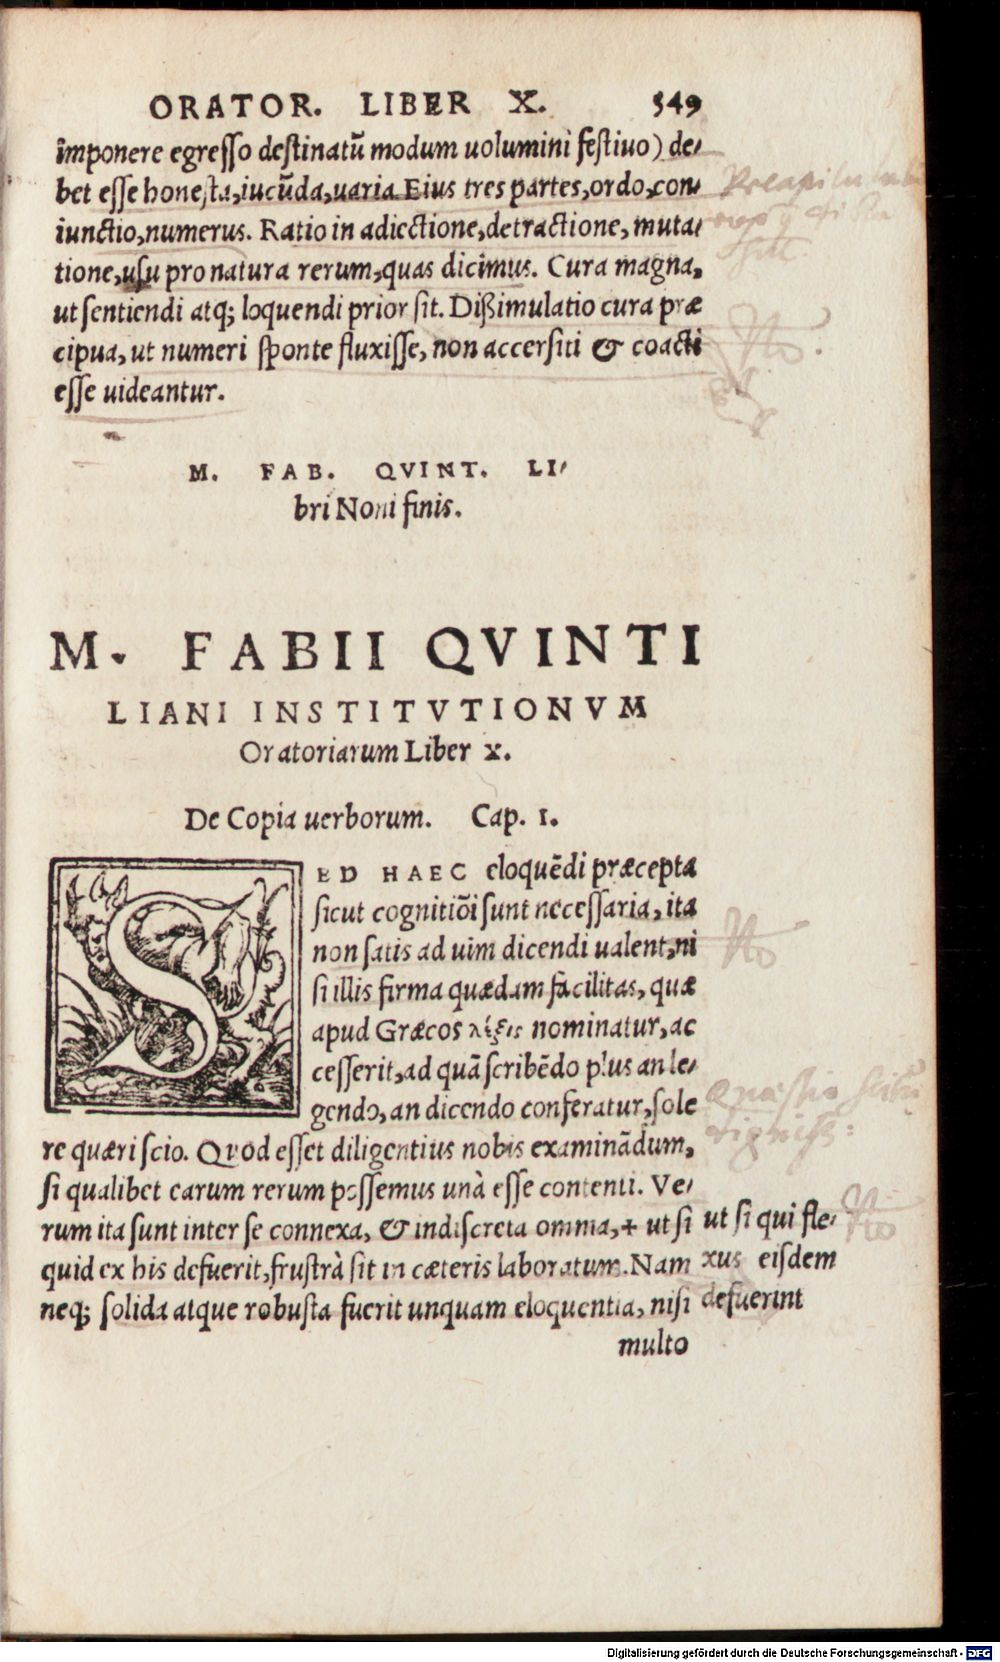 ORATOR. LIBER X. 549
imponere egresso destinatū modum uolumini festiuo) de/
bet esse honesta, iucūda, uaria. Eius tres partes, ordo, con/
iunctio, numerus. Ratio in adiectione, detractione, muta/
tione, usu pro natura rerum, quas dicimus. Cura magna,
ut sentiendi atq; loquendi prior sit. Dißimulatio cura præ
cipua, ut numeri sponte fluxisse, non accersiti & coacti
esse uideantur.
M. FAB. QVINT. LI/
bri Noni finis.
M. FABII QVINTI
LIANI INSTITVTIONVM
Oratoriarum Liber x.
De Copia uerborum. Cap. 1.
SED HAEC eloquēdi præcepta
sicut cognitiōi sunt necessaria, ita
non satis ad uim dicendi ualent, ni
si illis firma quædam facilitas, quæ
apud Græcos λέξις nominatur, ac
cesserit, ad quā scribēdo plus an le/
gendo, an dicendo conferatur, sole
re quæri scio. Quod esset diligentius nobis examinādum,
si qualibet earum rerum possemus unà esse contenti. Ve/
rum ita sunt inter se connexa, & indiscreta omnia, + ut si
quid ex his defuerit, frustrà sit in cæteris laboratum. Nam
neq; solida atque robusta fuerit unquam eloquentia, nisi
multo
ut si qui fle/
xus eisdem
defuerint
Quæstio
Digitalisierung gefördert durch die Deutsche Forschungsgemeinschaft - DFG